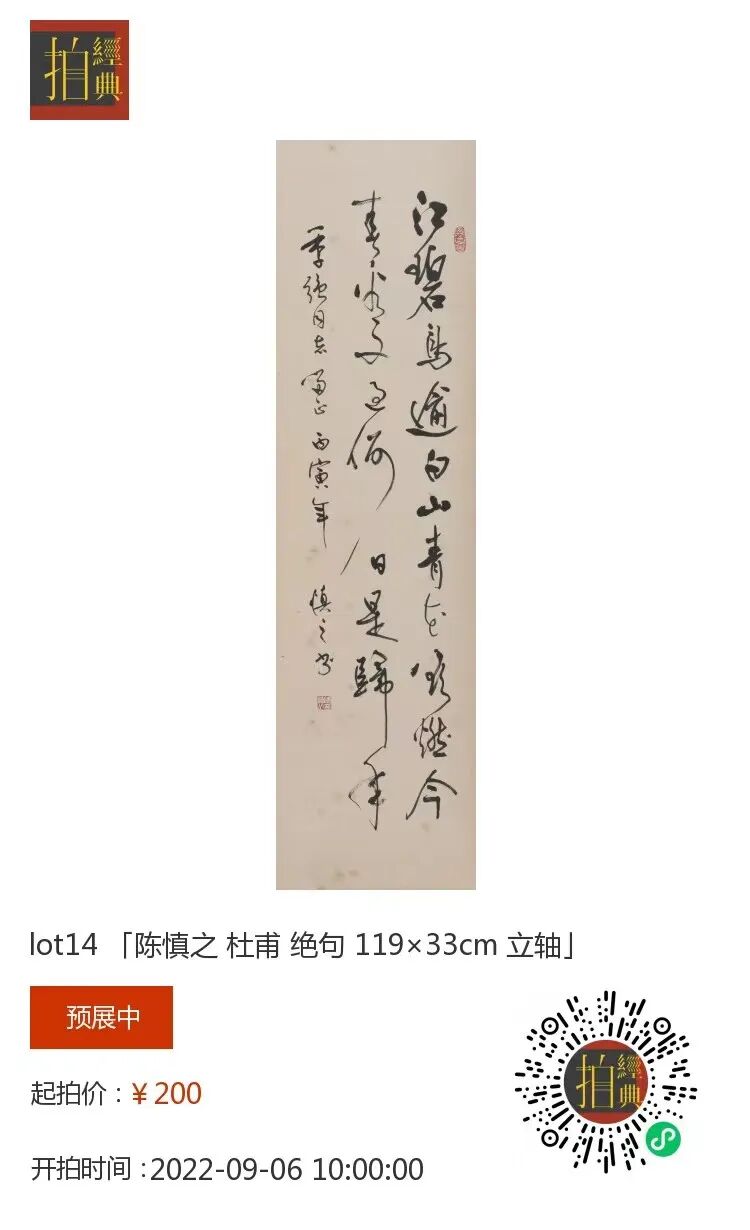 拍經典
江碧鳥逾白山青花欲燃今
春看又过何日是歸年
季强同志正 丙寅年 慎之书
lot14 「陈慎之 杜甫 绝句 119×33cm 立轴」
预展中
起拍价：¥200
开拍时间：2022-09-06 10:00:00
拍經典